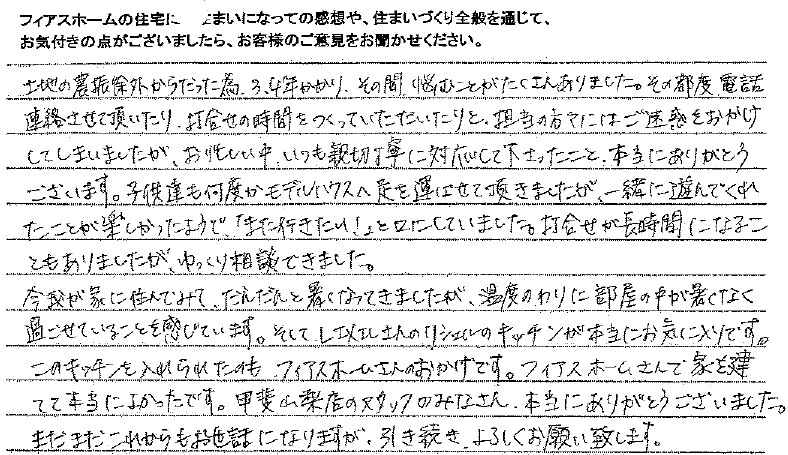 フィアスホームの住宅に　　まいになっての感想や、住まいづくり全般を通じて、
お気付きの点がございましたら、お客様のご意見をお聞かせください。
土地の農振除外からだった為、3、4年かかり、その間、悩むことがたくさんありました。その都度電話
連絡させて頂いたり、打合せの時間をつくっていただいたりと、担当の方々にはご迷惑をおかけ
してしまいましたが、お忙しい中、いつも親切丁寧に対応して下さったこと、本当にありがとう
ございます。子供達も何度かモデルハウスへ足を運ばせて頂きましたが、一緒に遊んでくれ
たことが楽しかったようで、「また行きたい！」と口にしていました。打合せが長時間になるこ
ともありましたが、ゆっくり相談できました。
今我が家に住んでみて、だんだんと暑くなってきましたが、温度のわりに部屋の中が暑くなく
過ごせていることを感じています。そしてLIXILさんのリシェルのキッチンが本当にお気に入りです。
このキッチンを入れられたのも、フィアスホームさんのおかげです。フィアスホームさんで家を建
てて本当によかったです。甲斐山梨店のスタッフのみなさん、本当にありがとうございました。
まだまだこれからもお世話になりますが、引き続き、よろしくお願い致します。